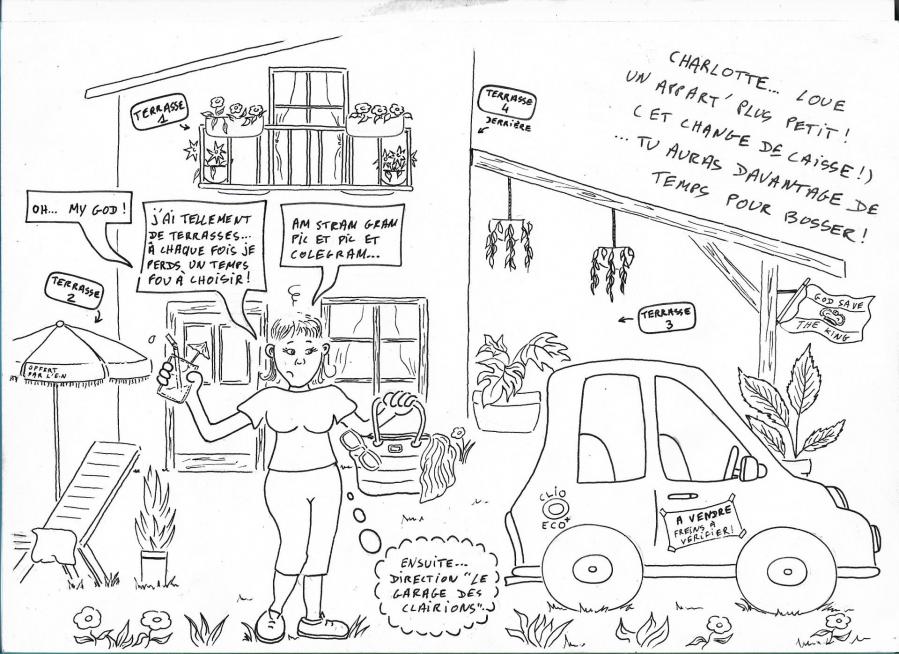 CHARLOTTE... LOUE
UN APPART' PLUS PETIT !
( ET CHANGE DE CAISSE ! )
... TU AURAS DAVANTAGE DE
TEMPS POUR BOSSER !
TERRASSE
1
TERRASSE
4
DERRIÈRE
OH... MY GOD !
J'AI TELLEMENT
DE TERRASSES...
À CHAQUE FOIS JE
PERDS UN TEMPS
FOU À CHOISIR !
AM STRAM GRAM
PIC ET PIC ET
COLEGRAM...
TERRASSE
2
TERRASSE
3
GOD SAVE
THE KING
OFFERT
PAR L'E.N
CLIO
ECO+
A VENDRE
FREINS À
VÉRIFIER !
ENSUITE...
DIRECTION "LE
GARAGE DES
CLAIRIONS"...